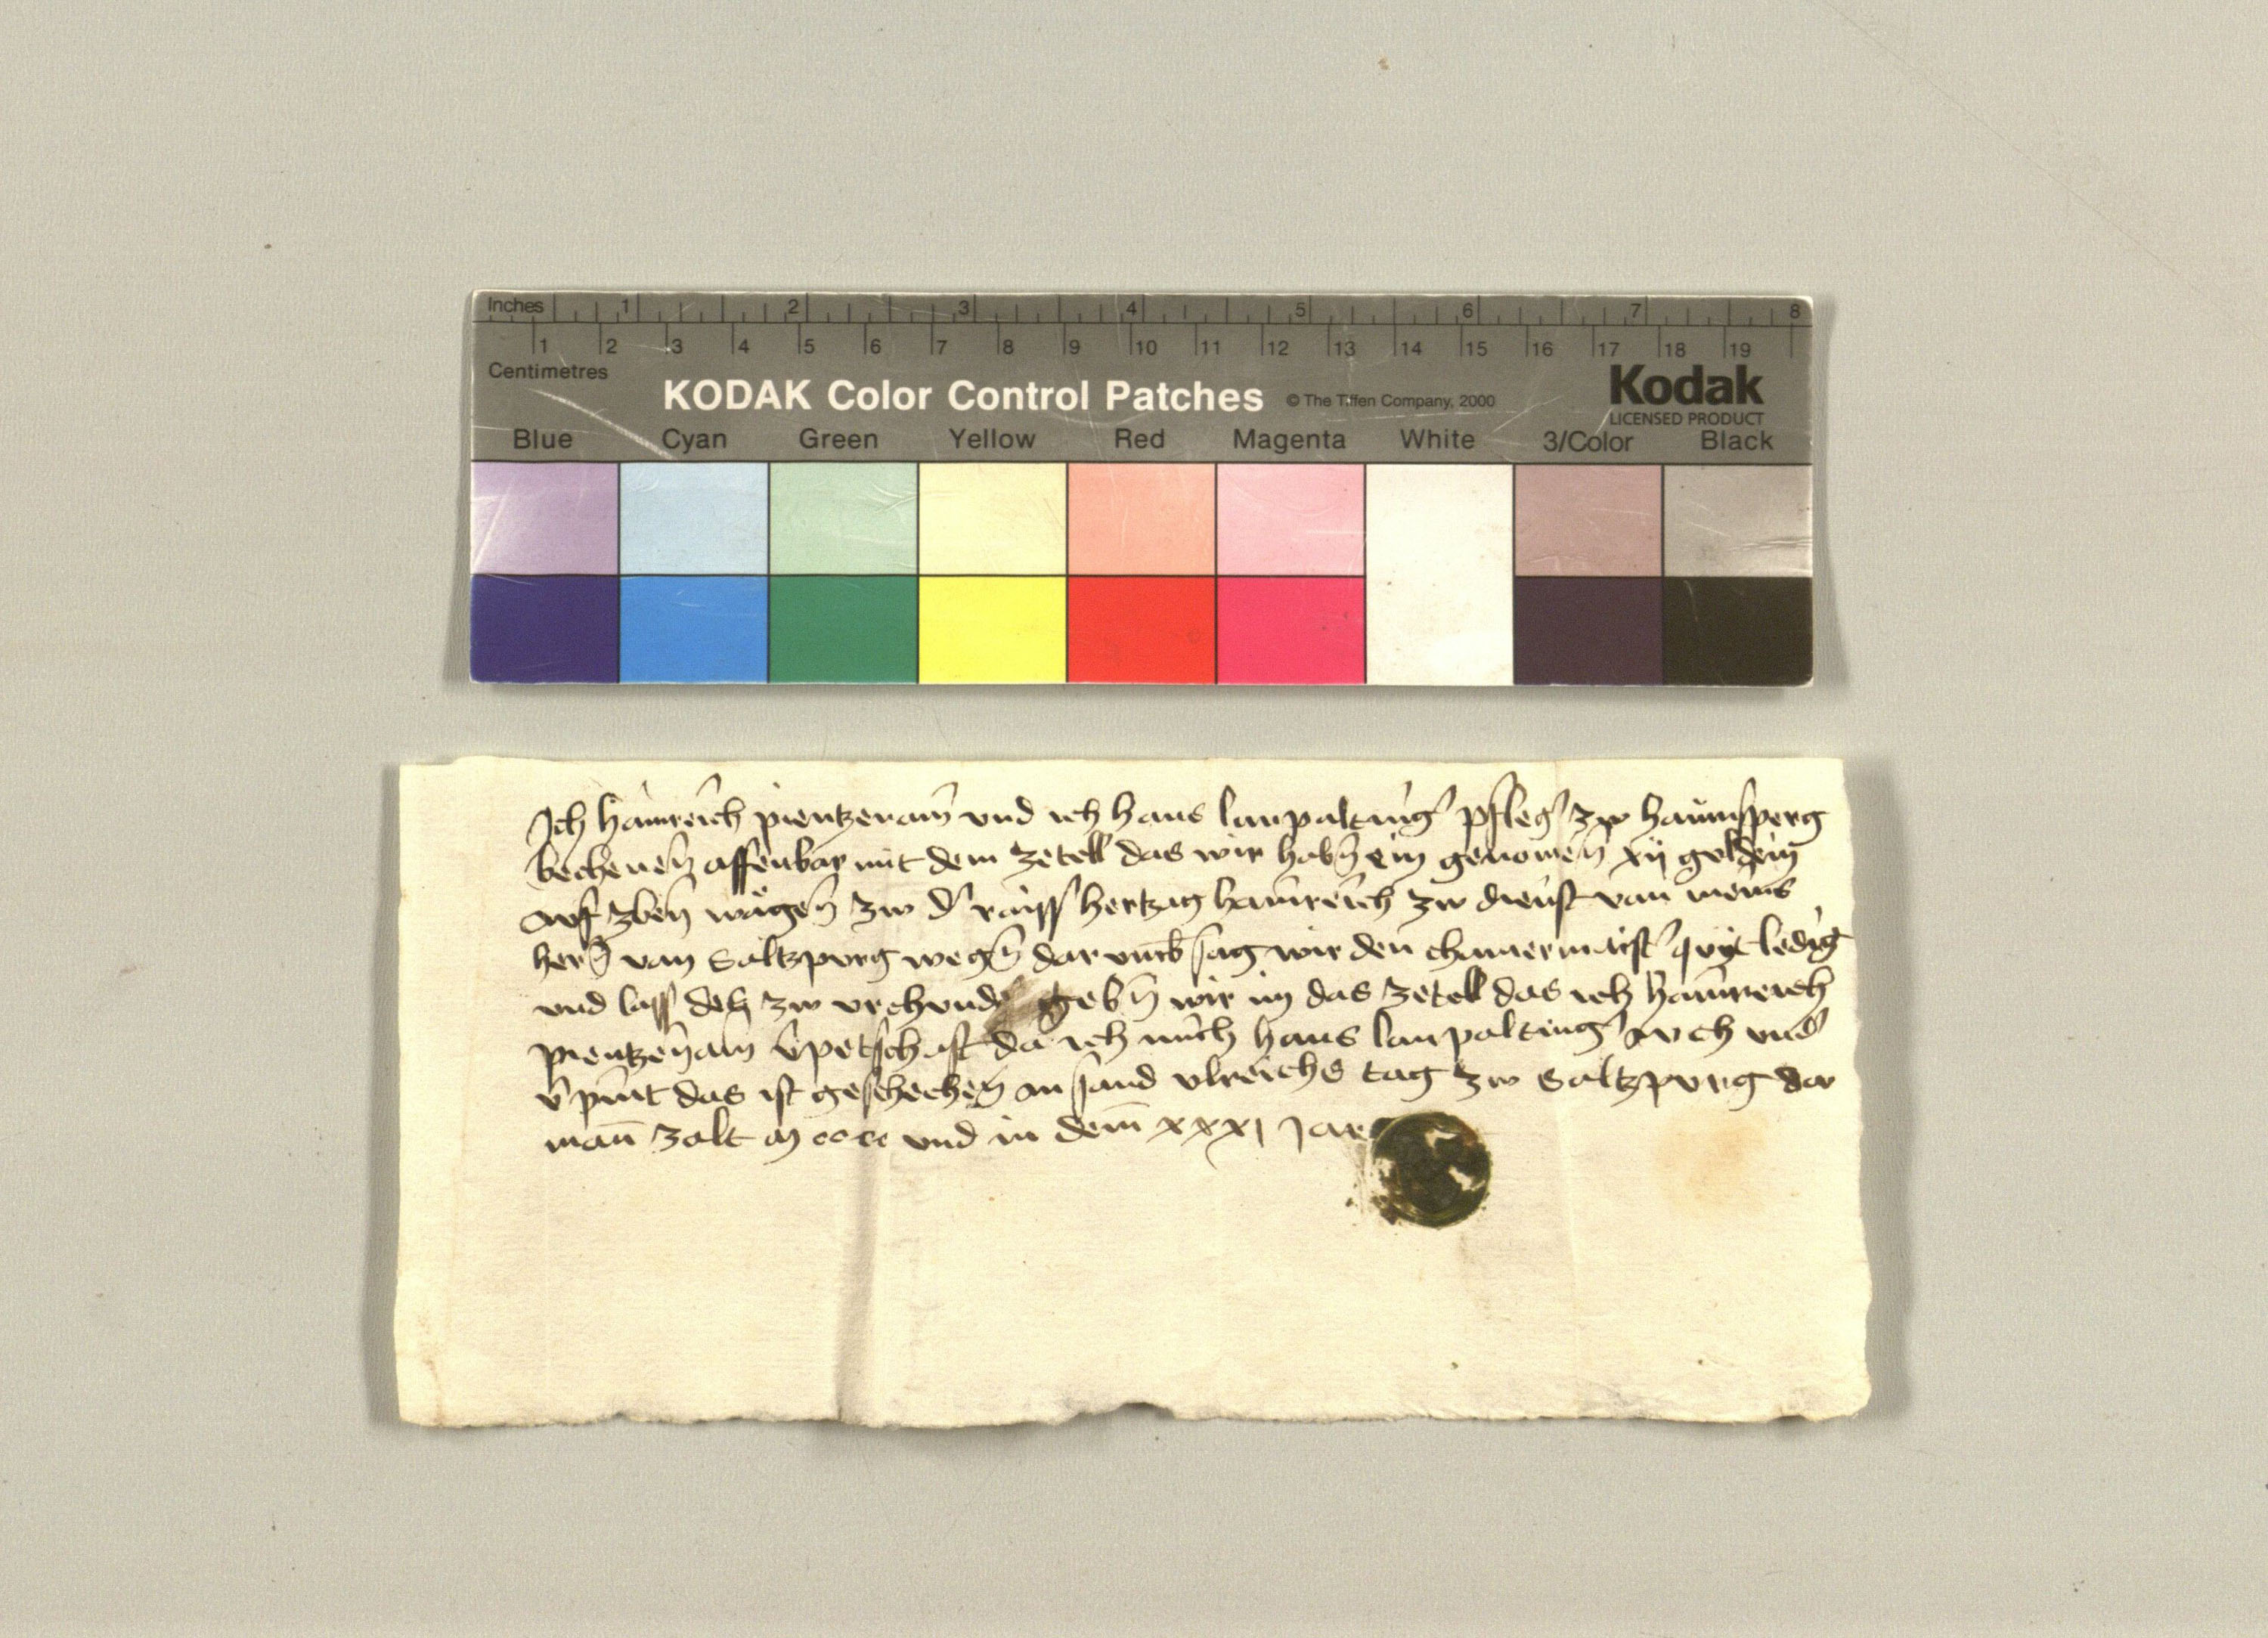 Inches 1 2 3 4 5 6 7 8
1 2 3 4 5 6 7 8 9 10 11 12 13 14 15 16 17 18 19
Centimetres
KODAK Color Control Patches © The Tiffen Company, 2000 Kodak
LICENSED PRODUCT
Blue Cyan Green Yellow Red Magenta White 3/Color Black
Ich hainreich pientzenaw̄ vnd ich hans lanpalting' pfleg' zw haunsperg
bechenen̄ affenbar mit dem zetell das wir habn̄ ein genomen̄ xij guldein
awf zben̄ wägen̄ zw d' raiss hertzag hainreich zw dienst van meins
hern̄ van Saltzpurg wegn̄ dar vmb sag wir den chamermaist' quit ledig
vnd lass des zw vrchund gebn̄ wir im das zetell das ich hainreich
pientzenaw̄ v'petschaft da ich mich hans lanpalting' awch vnd'
v'pint das ist geschechen̄ an sand vlreichs tag zw Saltzpurg dar
man̄ zalt m cccc vnd in dem̄ xxxi Jar